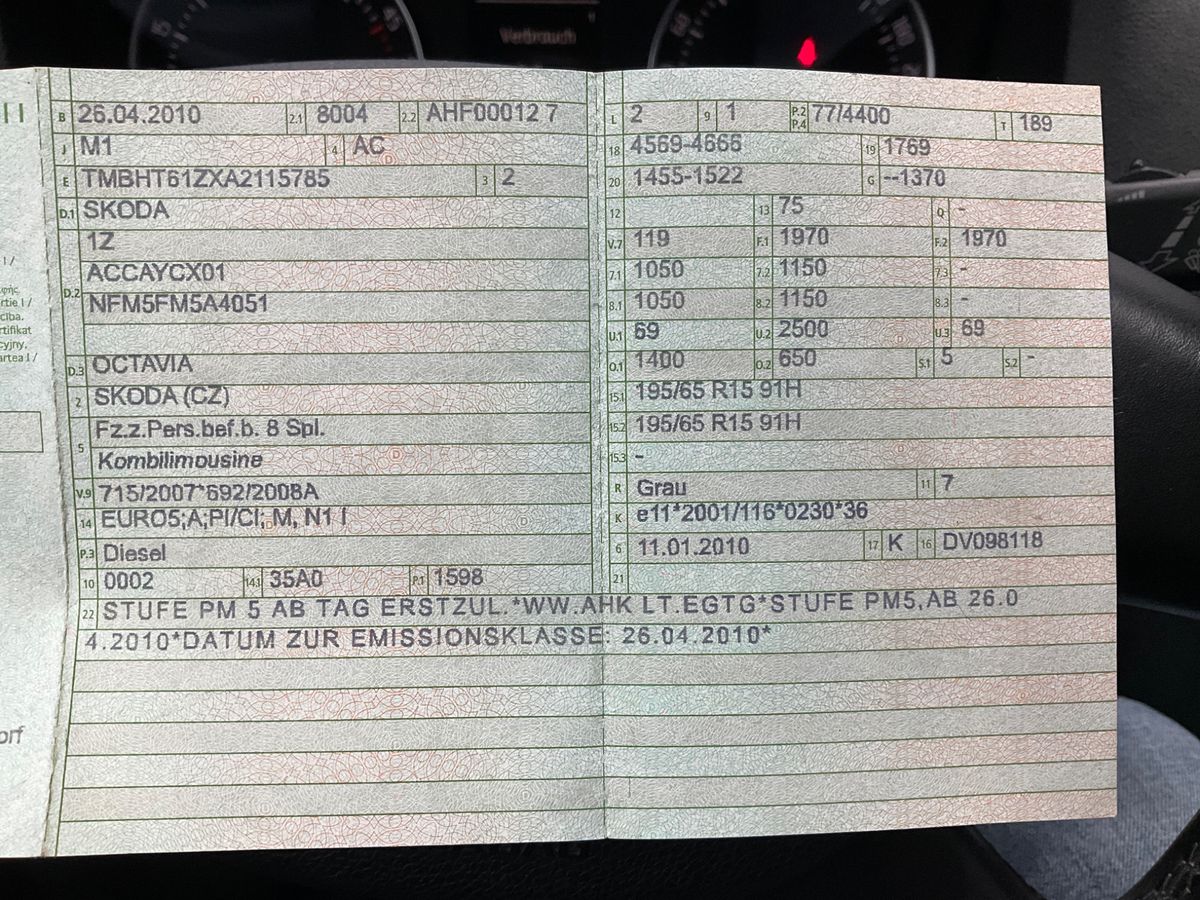 Verbrauch
B 26.04.2010 2.1 8004 2.2 AHF00012 7
J M1 4 AC
E TMBHT61ZXA2115785 3 2
D.1 SKODA
1Z
D.2 ACCAYCX01
NFM5FM5A4051
D.3 OCTAVIA
2 SKODA (CZ)
5 Fz.z.Pers.bef.b. 8 Spl.
Kombilimousine
V.9 715/2007*692/2008A
14 EURO5;A;PI/CI; M, N1 I
P.3 Diesel
10 0002 14.1 35A0 P.1 1598
L 2 9 1 P.2 P.4 77/4400 T 189
18 4569-4666 19 1769
20 1455-1522 G --1370
12 13 75 Q -
V.7 119 F.1 1970 F.2 1970
7.1 1050 7.2 1150 7.3 -
8.1 1050 8.2 1150 8.3 -
U.1 69 U.2 2500 U.3 69
O.1 1400 O.2 650 S.1 5 S.2 -
15.1 195/65 R15 91H
15.2 195/65 R15 91H
15.3 -
R Grau 11 7
K e11*2001/116*0230*36
6 11.01.2010 17 K 16 DV098118
21
22 STUFE PM 5 AB TAG ERSTZUL.*WW.AHK LT.EGTG*STUFE PM5,AB 26.0
4.2010*DATUM ZUR EMISSIONSKLASSE: 26.04.2010*